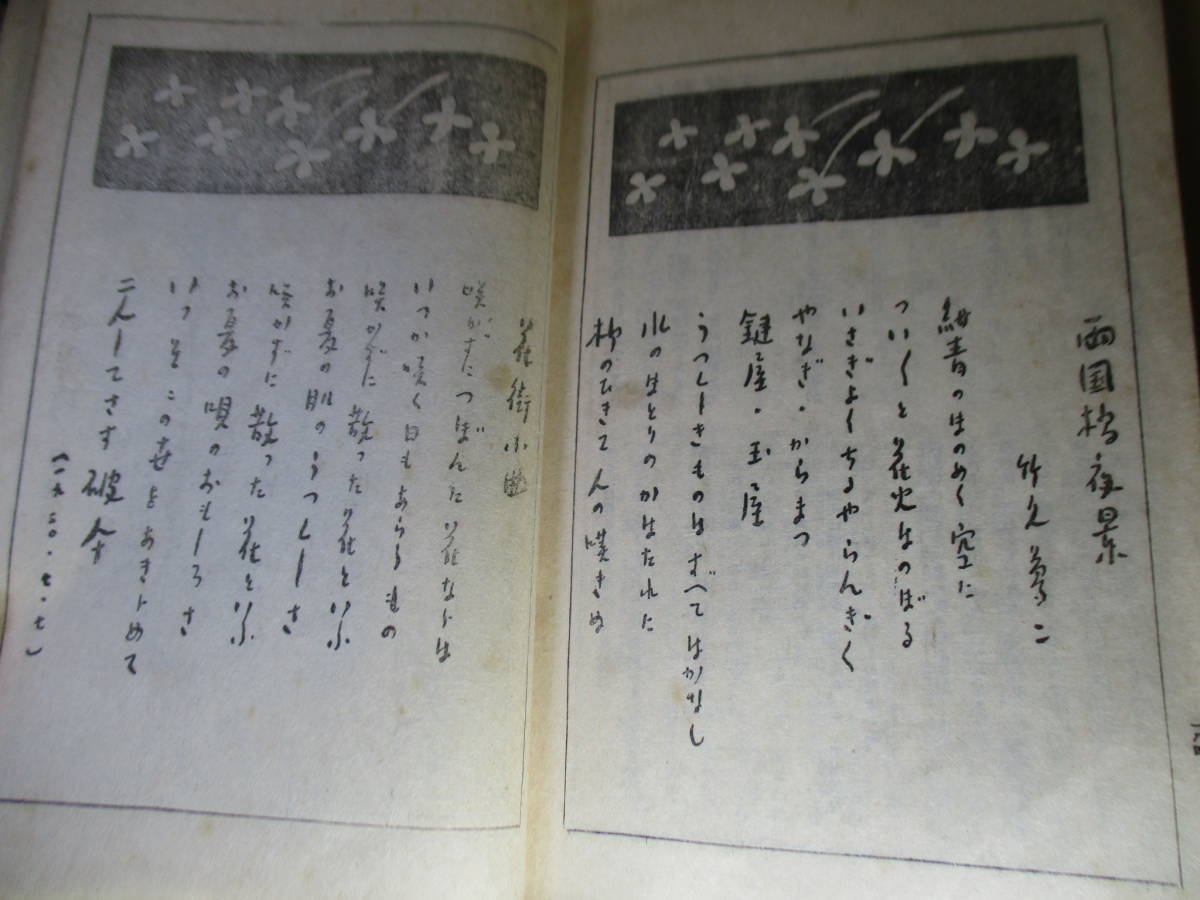 両国橋夜景
竹久夢二
紺青のほのめく空に
ついくと花火はのぼる
いさぎよくちるやらんぎく
やなぎ・からまつ
鍵屋・玉屋
うつくしきものはすべてはかなし
水のほとりのかはたれに
橋のひきて人の嘆きぬ
花街小曲
咲かずにつぼんだ花ならば
いつか咲く日もあらうもの
咲かずに散った花といふ
お夏の肌のうつくしさ
咲かずに散った花といふ
お夏の唄のおもしろさ
いつそこの世をあきらめて
二人してさす破れ傘
(一九二〇・七・七)